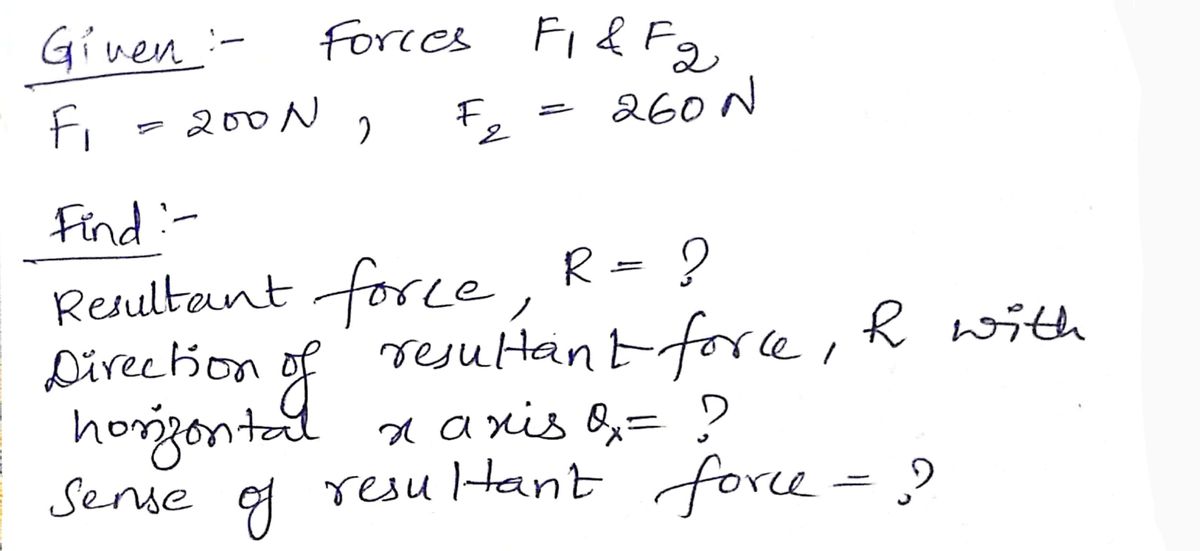 Given :- Forces F1 & F2
F1 = 200 N , F2 = 260 N
Find :-
Resultant force, R = ?
Direction of resultant force, R with
horizontal x axis θx = ?
Sense of resultant force = ?